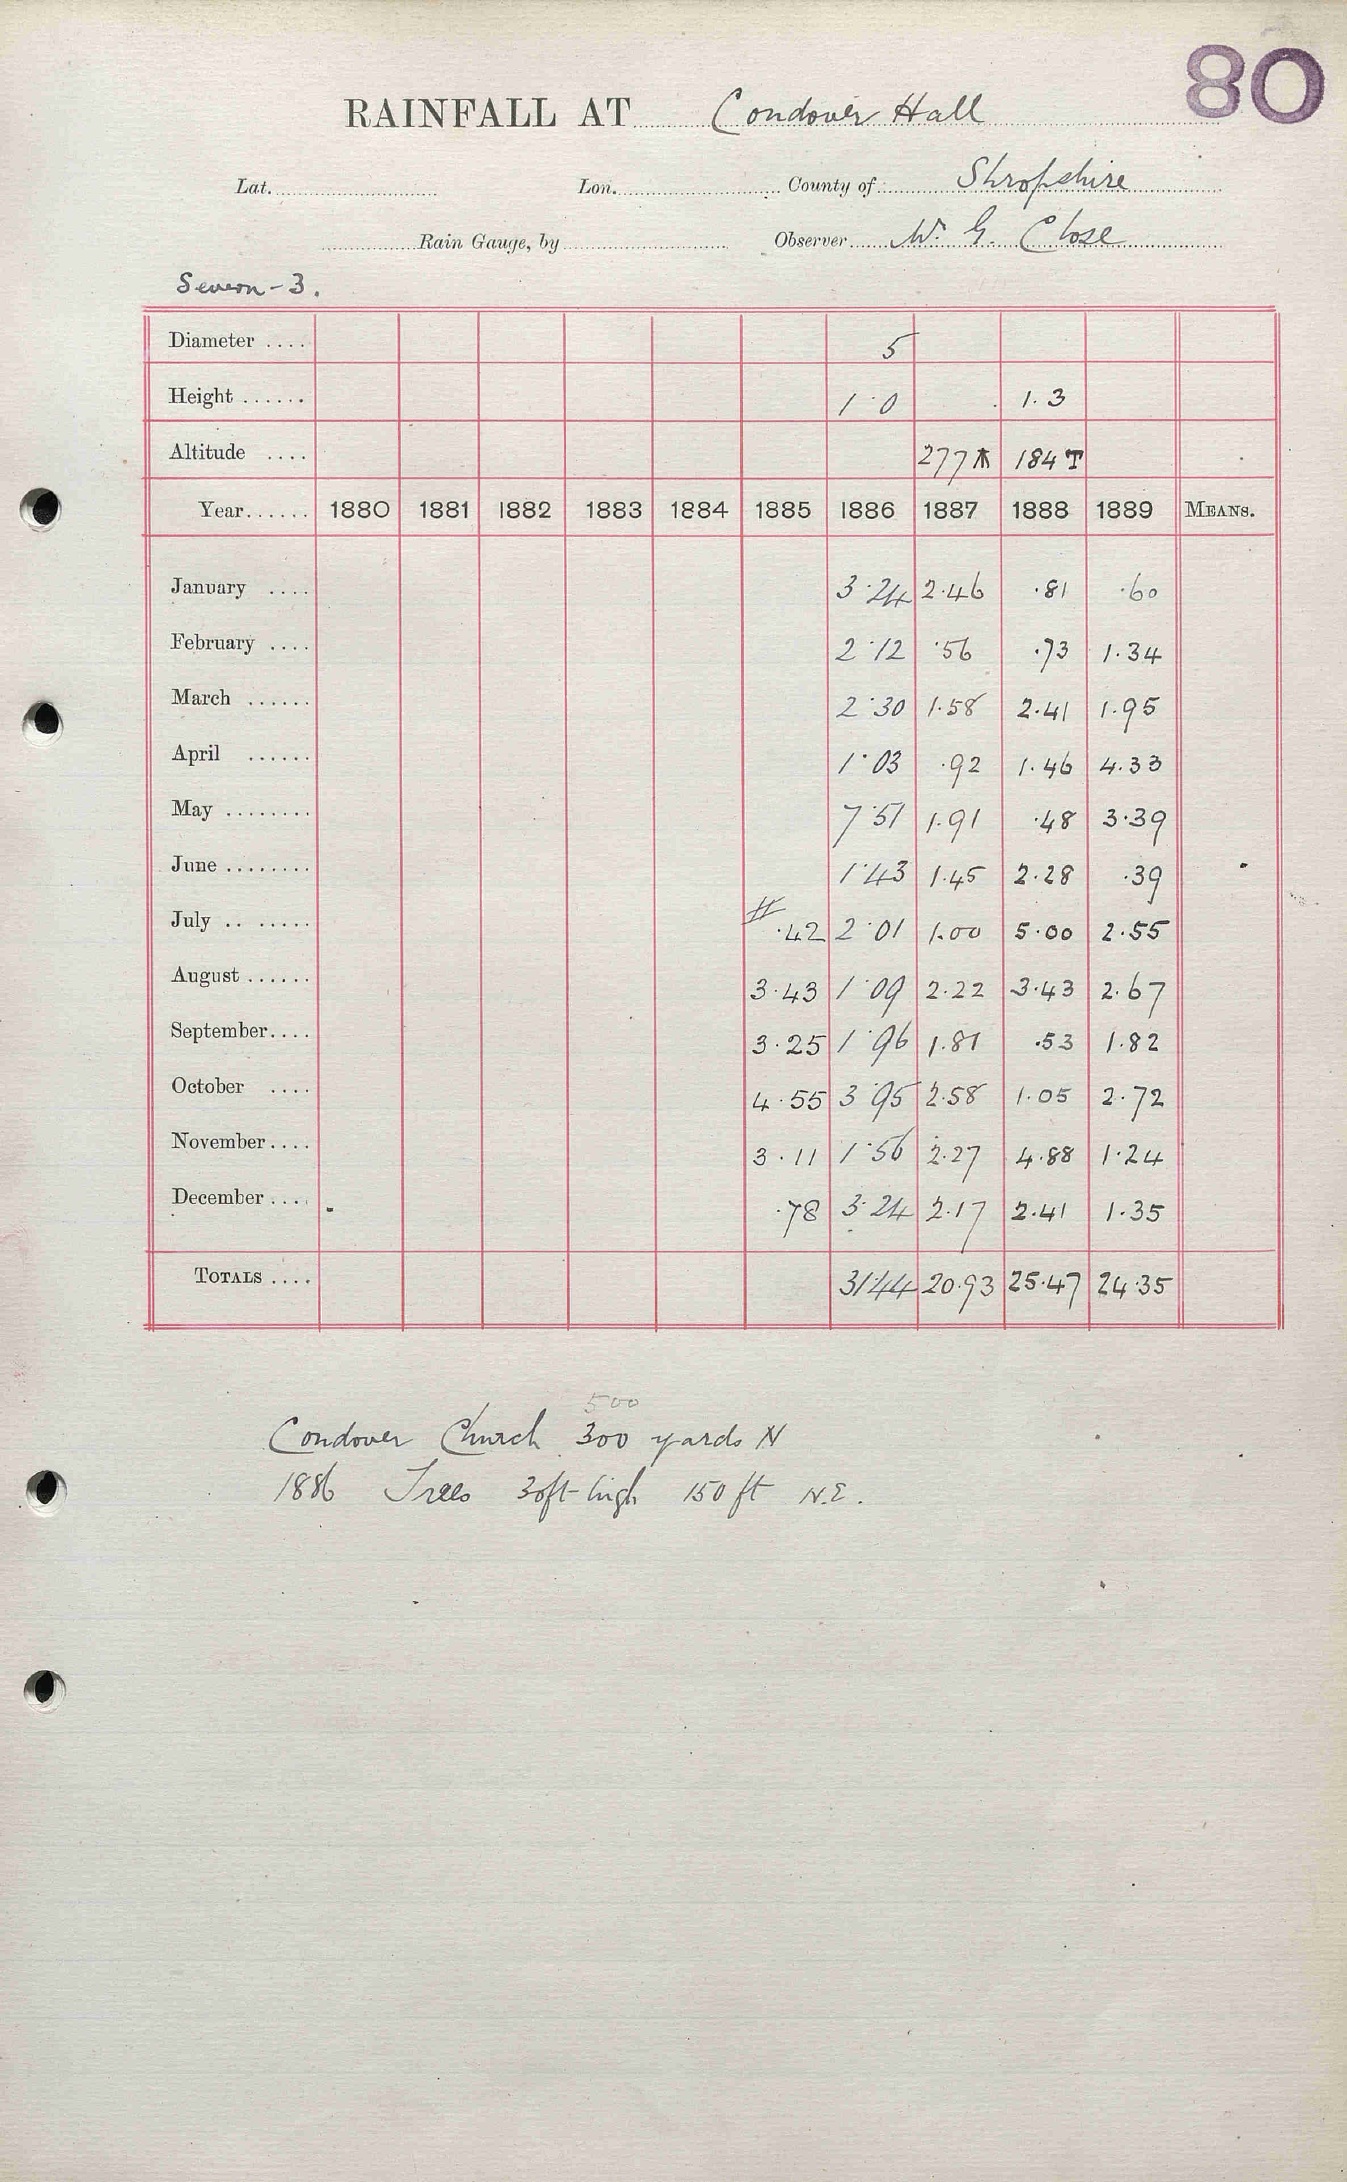 80
RAINFALL AT Condover Hall
Lat. Lon. County of Shropshire
Rain Gauge, by Observer W. G. Close
Severn - 3.
Diameter .... 5
Height ...... 1·0 1·3
Altitude .... 277 184 T
Year...... 1880 1881 1882 1883 1884 1885 1886 1887 1888 1889 MEANS.
January .... 3·24 2·46 ·81 ·60
February .... 2·12 ·56 ·73 1·34
March ...... 2·30 1·58 2·41 1·95
April ...... 1·03 ·92 1·46 4·33
May ........ 7·51 1·91 ·48 3·39
June ........ 1·43 1·45 2·28 ·39
July .. ...... # ·42 2·01 1·00 5·00 2·55
August ...... 3·43 1·09 2·22 3·43 2·67
September.... 3·25 1·96 1·81 ·53 1·82
October .... 4·55 3·95 2·58 1·05 2·72
November.... 3·11 1·56 2·27 4·88 1·24
December .... ·78 3·24 2·17 2·41 1·35
TOTALS .... 31·44 20·93 25·47 24·35
500
Condover Church 300 yards N
1886 Trees 30ft high 150 ft N.E.